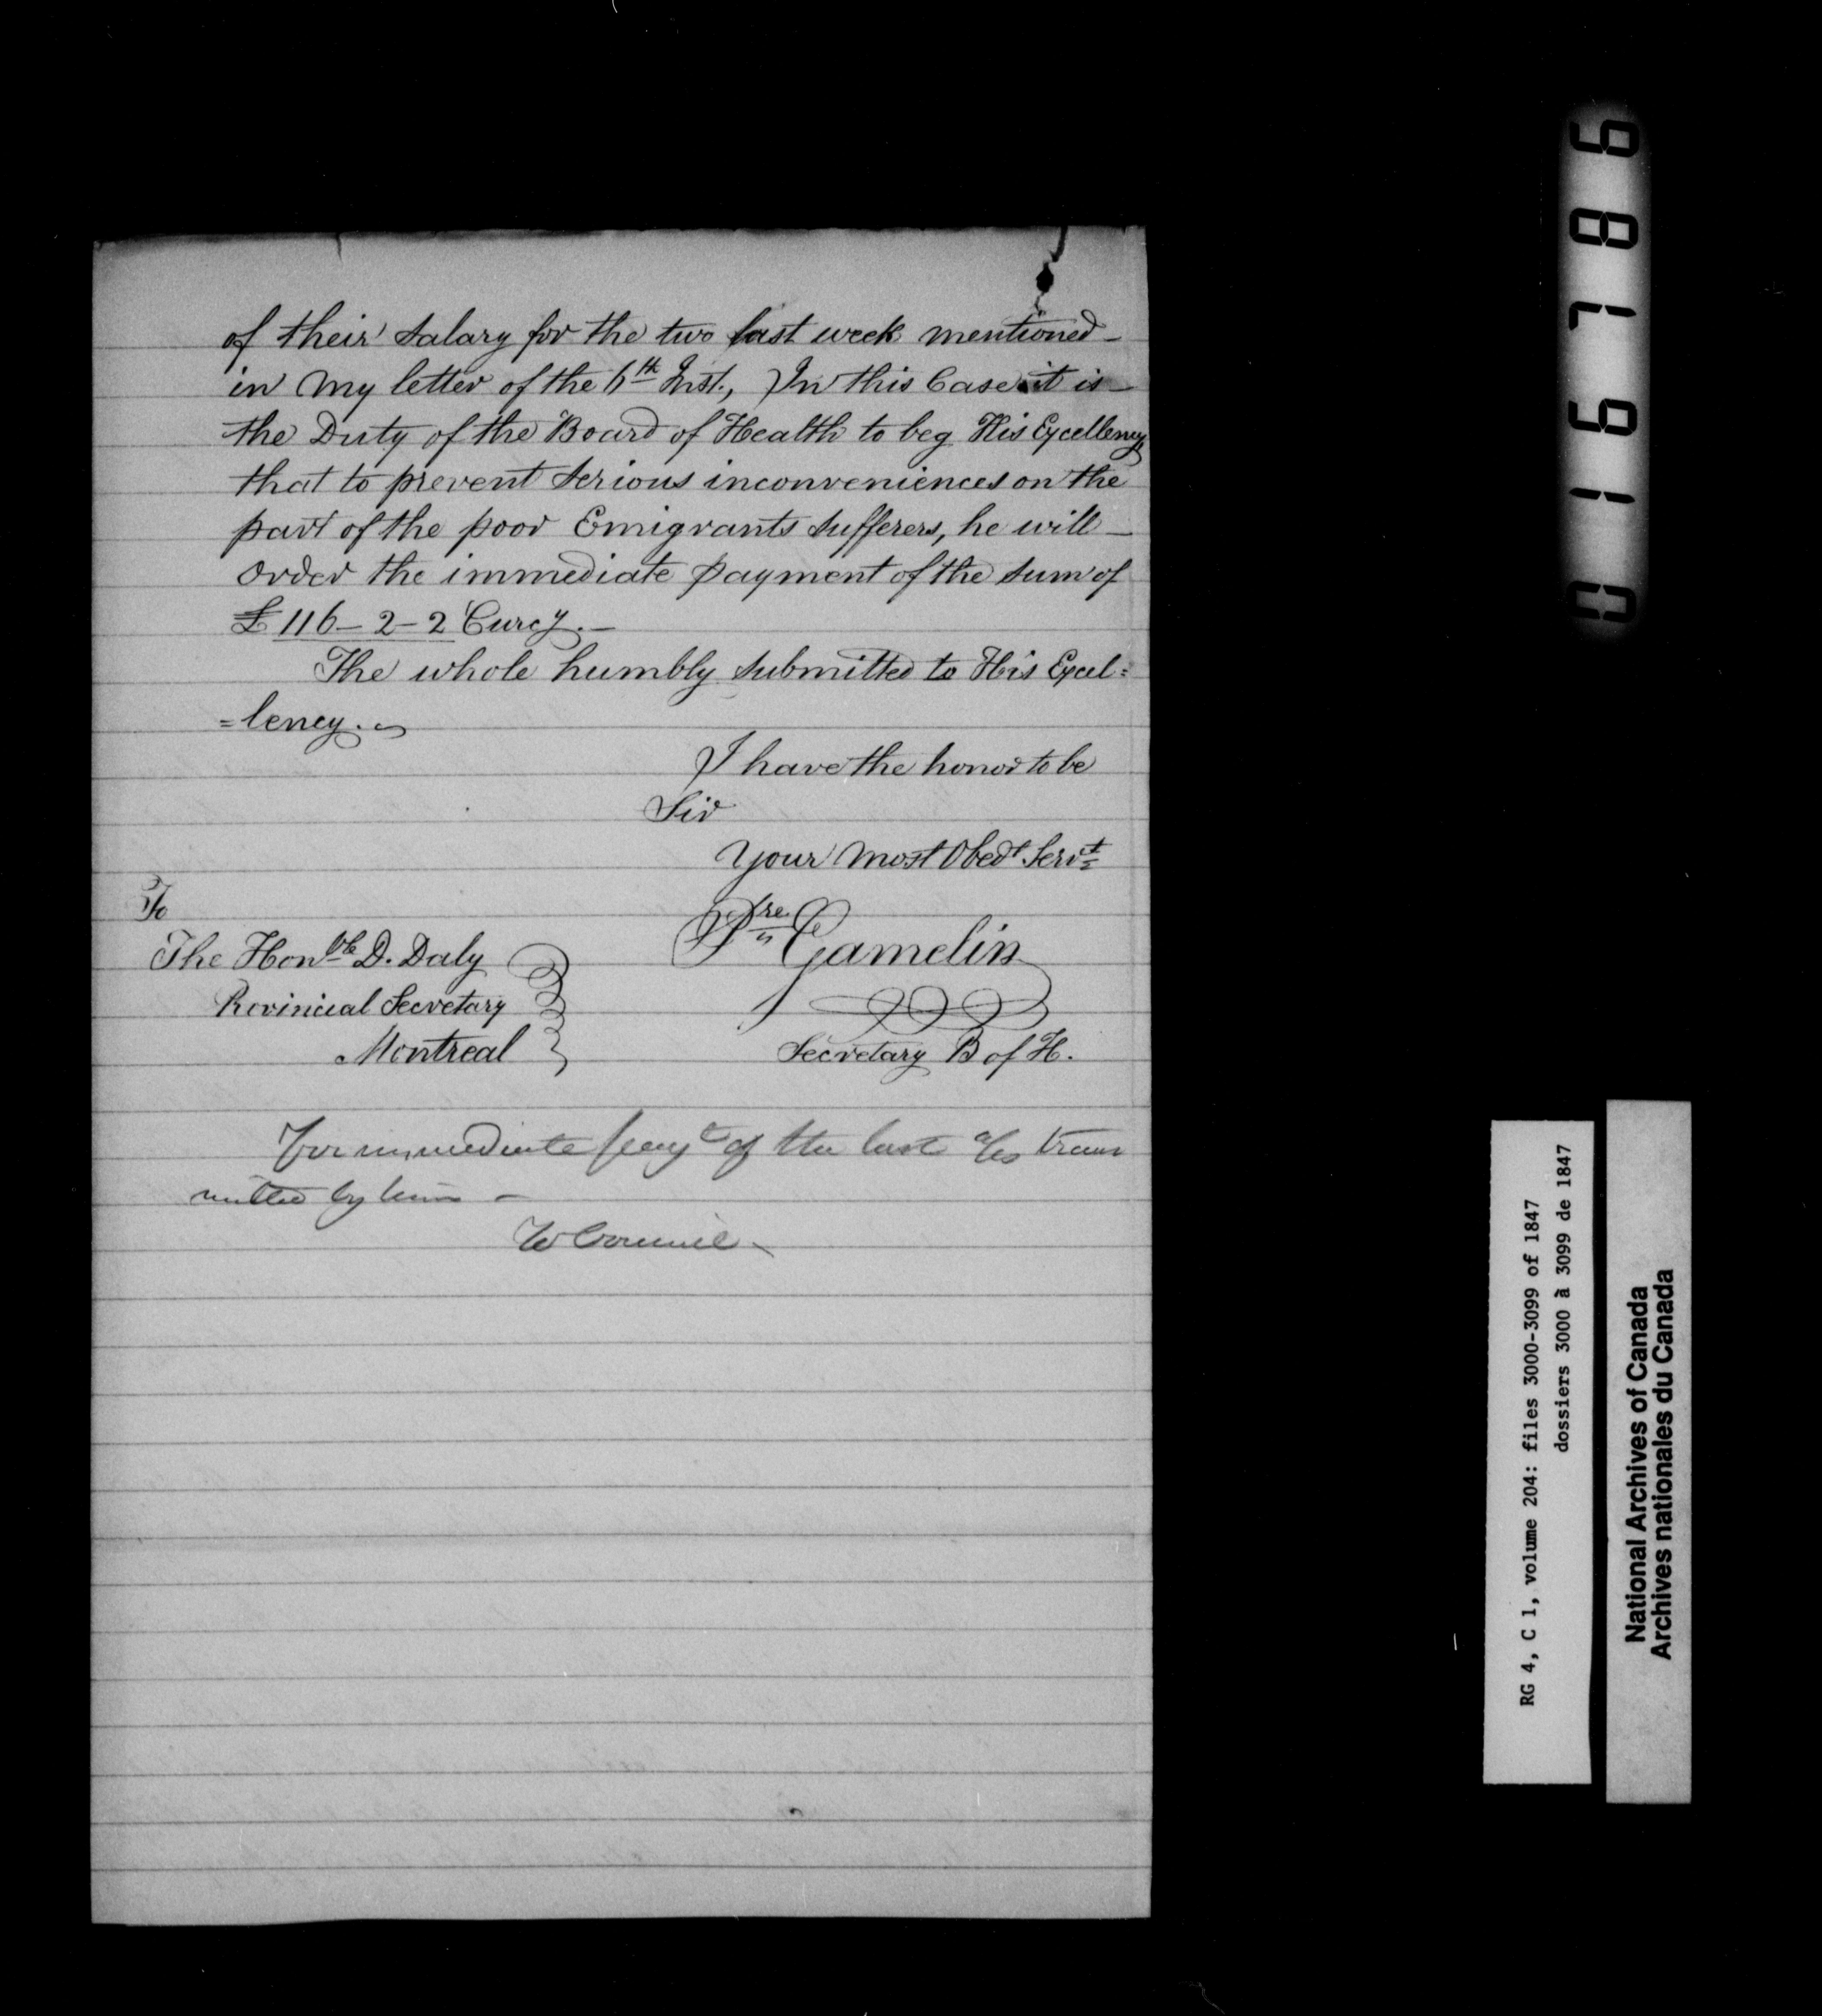 of their Salary for the two last week mentioned –
in my letter of the 6th Inst., In this Case it is –
the Duty of the Board of Health to beg His Excellency
that to prevent Serious inconveniences on the
part of the poor Emigrants Sufferers, he will –
Order the immediate payment of the Sum of
£ 116 – 2 – 2 Curcy. –
The whole humbly Submitted to His Excel=
=lency.
I have the honor to be
Sir
Your Most Obedt Servt
Pre Gamelin
Secretary B of H.
To
The Honble D. Daly
Provincial Secretary
Montreal
For immediate payt of the last a/cs trans
mitted by him –
To Council
016786
RG 4, C 1, volume 204: files 3000-3099 of 1847
dossiers 3000 à 3099 de 1847
National Archives of Canada
Archives nationales du Canada